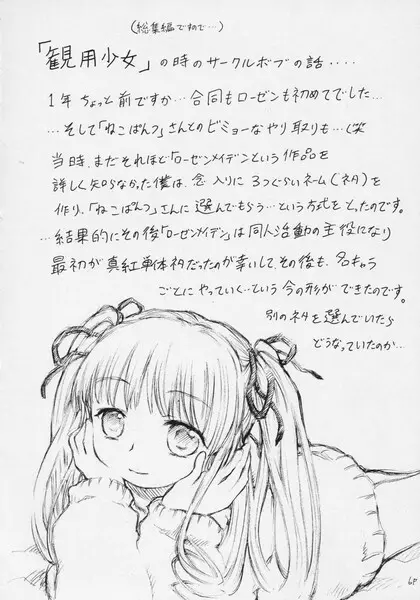 (総集編ですので…)
「観用少女」の時のサークルボブの話‥‥
1年ちょっと前ですか…合同もローゼンも初めてでした…
…そして「ねこぱんつ」さんとのビミョーなやり取りも…(笑
当時、まだそれほど「ローゼンメイデン」という作品を
詳しく知らなかった僕は、念入りに3つぐらいネーム(ネタ)を
作り、「ねこぱんつ」さんに選んでもらう…という方式をとったのです。
…結果的にその後「ローゼンメイデン」は同人活動の主役になり
最初が真紅単体ネタだったのが幸いして、その後も、各キャラ
ごとにやっていく…という今の形ができたのです。
別のネタを選んでいたら
どうなっていたのか…